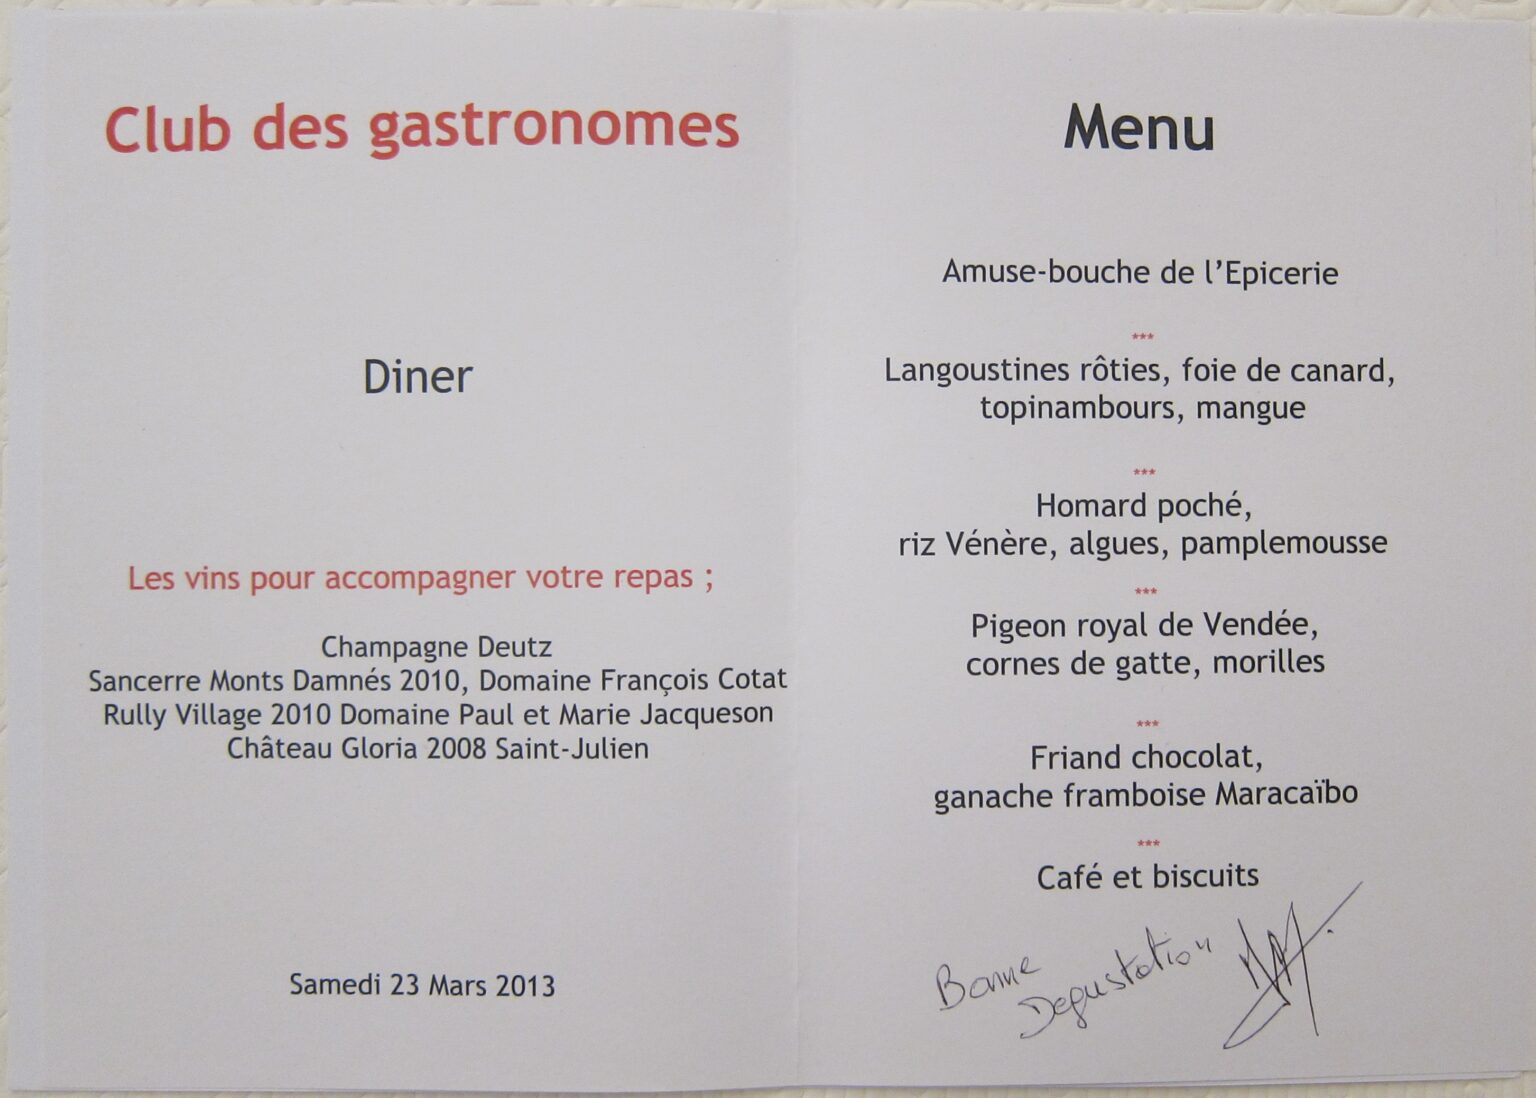 Club des gastronomes
Diner
Les vins pour accompagner votre repas ;
Champagne Deutz
Sancerre Monts Damnés 2010, Domaine François Cotat
Rully Village 2010 Domaine Paul et Marie Jacqueson
Château Gloria 2008 Saint-Julien
Samedi 23 Mars 2013
Menu
Amuse-bouche de l’Epicerie
***
Langoustines rôties, foie de canard,
topinambours, mangue
***
Homard poché,
riz Vénère, algues, pamplemousse
***
Pigeon royal de Vendée,
cornes de gatte, morilles
***
Friand chocolat,
ganache framboise Maracaïbo
***
Café et biscuits
Bonne
Degustation